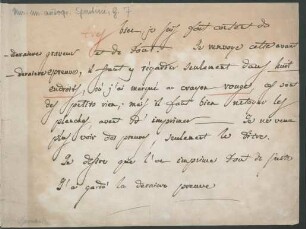 bien je suis fort content de
dernières preuves et de tout. Je renvoye cette avant
dernière épreuve, il faut y regarder seulement dans huit
endroits, où j'ai marqué au crayon rouge,
des petits riens; mais il faut bien nettoyer les
planches avant de imprimer. Je ne veux
plus voir des preuves, seulement le titre.
Je désire que l'on imprime tout de suite.
J'ai gardé la dernière preuve